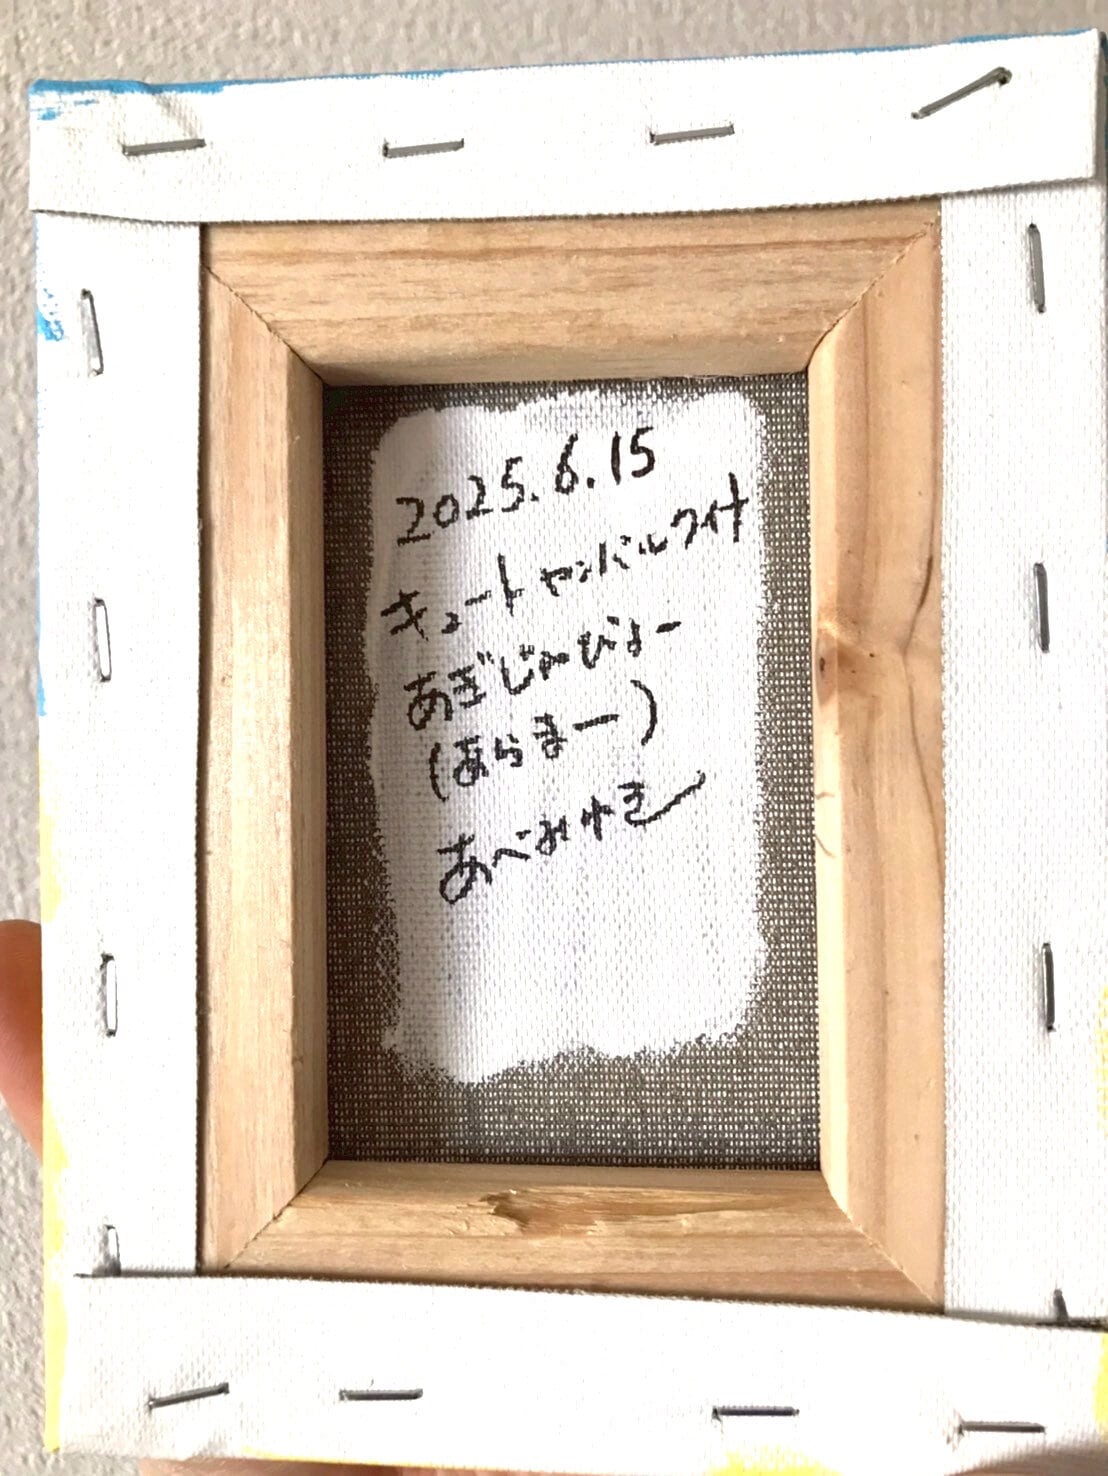 2025.6.15
キュートヤンバルクイナ
あぎじゃびょー
(あらまー)
あべみゆき